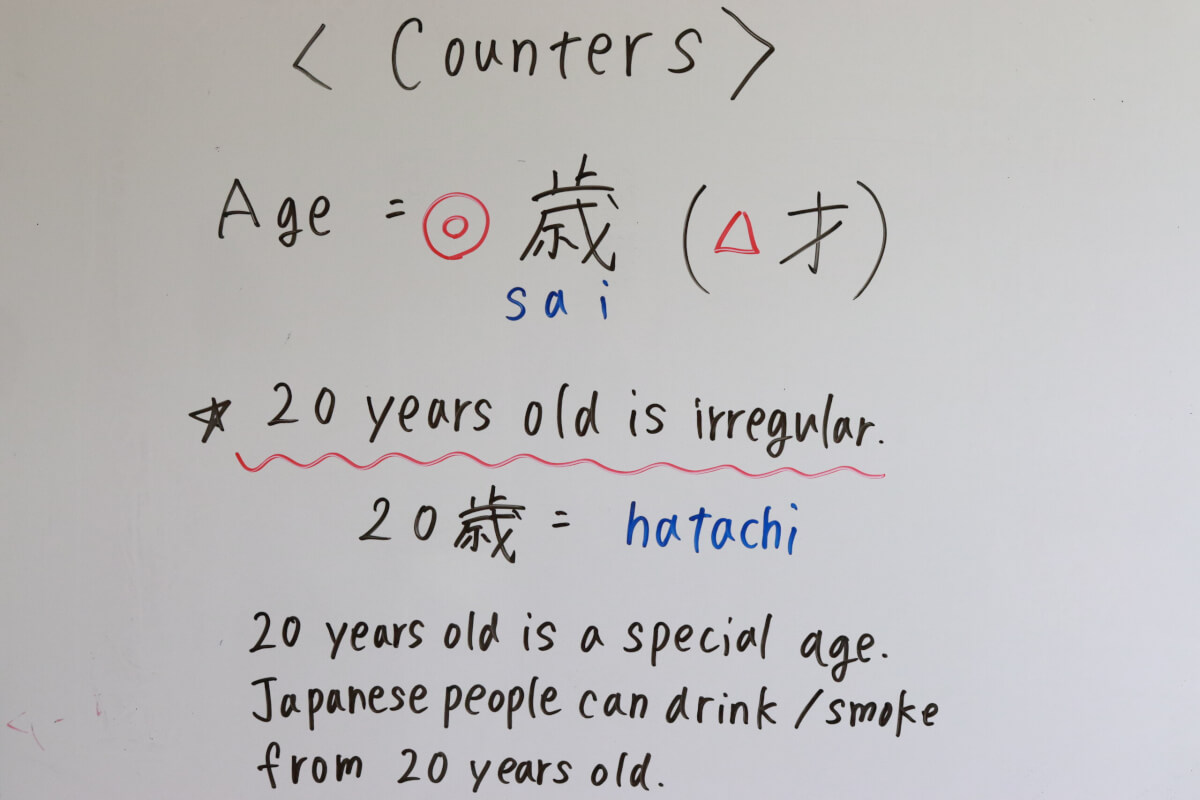 < Counters >
Age = ◎ 歳 (△才)
sai
☆ 20 years old is irregular.
20歳 = hatachi
20 years old is a special age.
Japanese people can drink / smoke
from 20 years old.